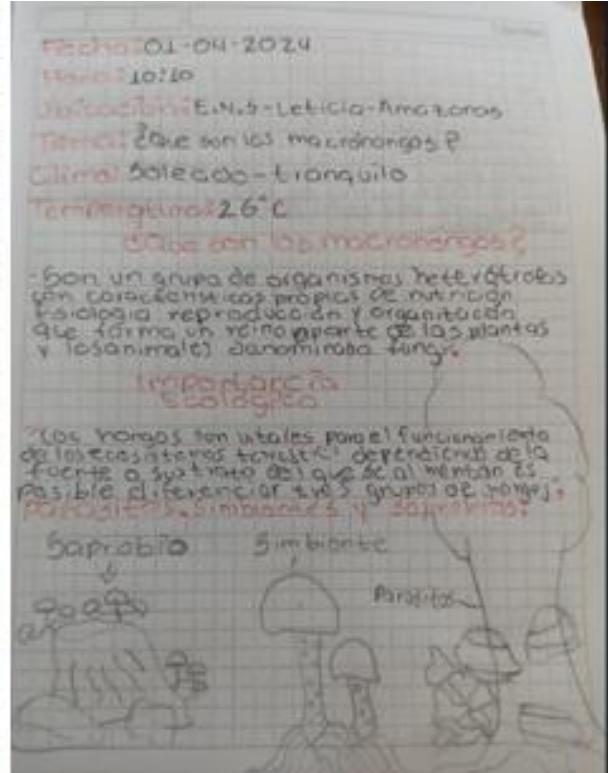 Fecha: 01-04-2024
Hora: 10:10
Ubicación: E.N.S-Leticia-Amazonas
Tema: ¿Que son los macrohongos?
Clima: Soleado-tranquilo
Temperatura: 26°C
¿Que son los macrohongos?
-Son un grupo de organismos heterótrofos
con características propias de nutrición
fisiología reproducción y organización
que forma un reino aparte de las plantas
y los animales danominaba fungi.
Importancia
Ecológica
Los hongos son vitales para el funcionamiento
de los ecosistemas terestre dependiendo de la
fuente o sustrato del que se alimentan es
posible diferenciar tres grupos de hongos:
Parasitos, Simbiontes y saprobios.
Saprobio
Simbionte
Parasitos